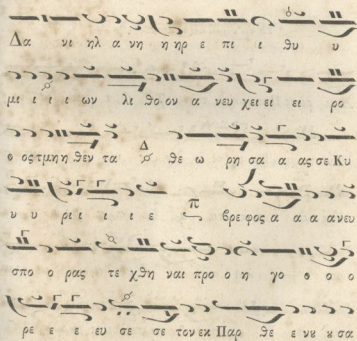 Δα νι ηλ α νη η ηρ ε πι ι θυ υ
μι ι ι ι ων λι θο ον α νευ χει ει ει ρο
ο οςτμη η θεν τα Δ θε ω ρη σα α ας σε Κυ
υ υ ρι ι ι ι ε π βρεφος α α α ανευ
σπο ο ρας τε χθη ναι προ ο η γο ο ο ο
ρε ε ε ευ σε σε τον εκ Παρ θε ε νου ου σα